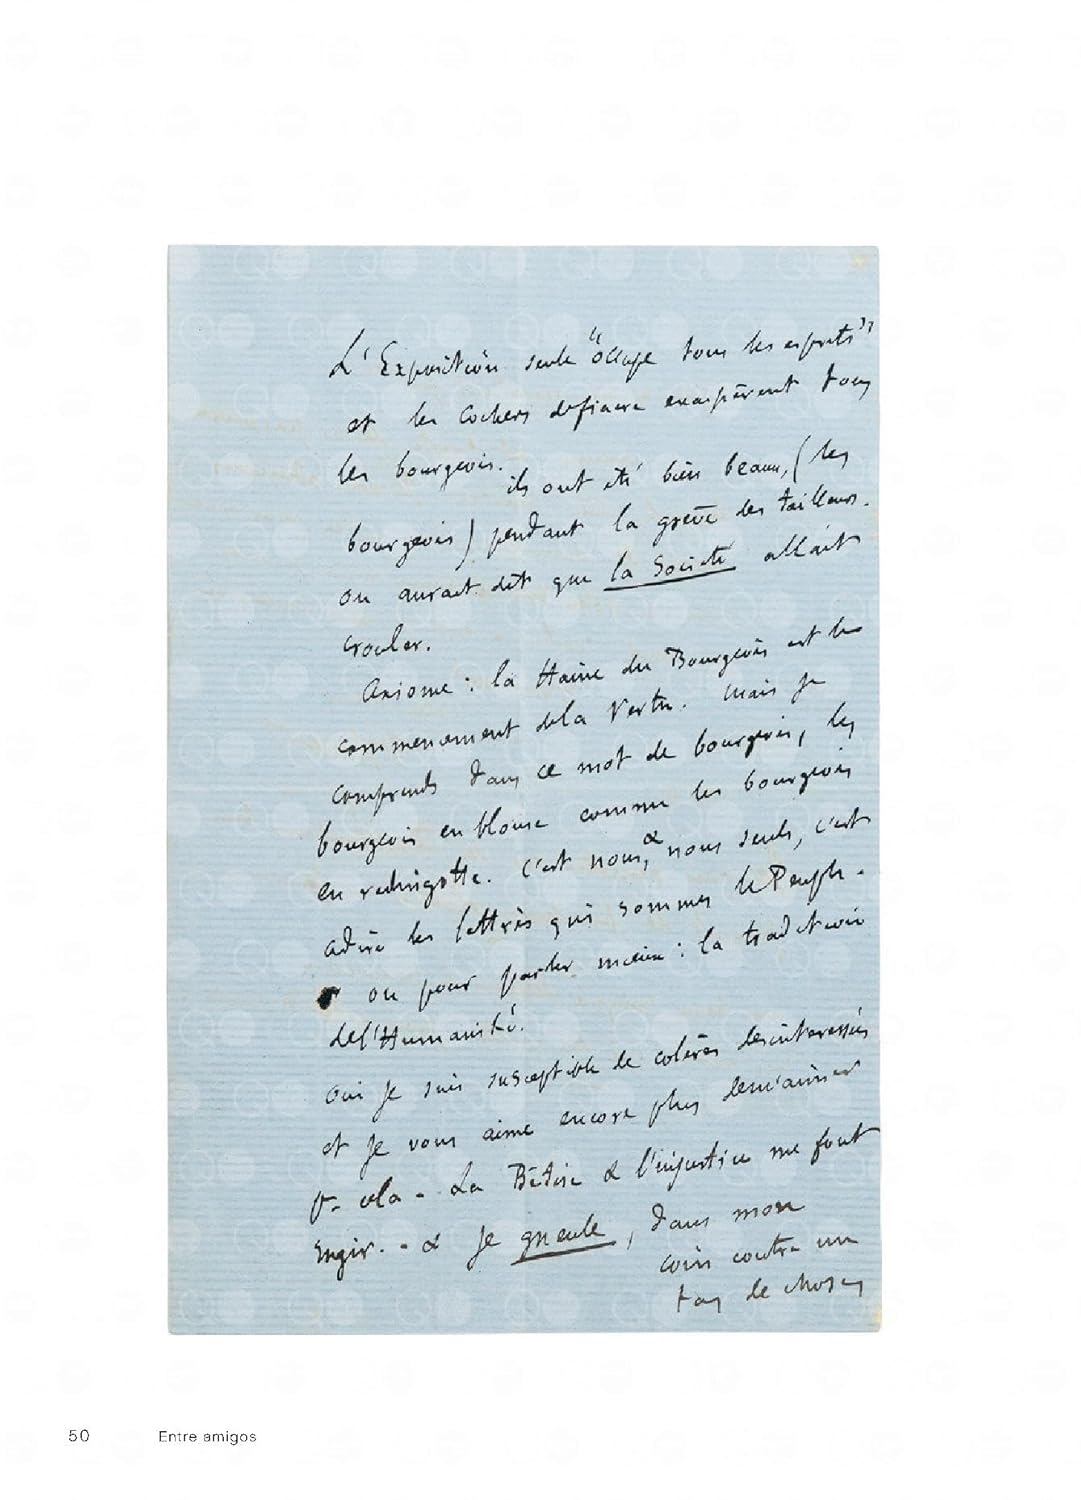 L'Exposition seule "occupe tous les esprits"
et les cochers de fiacre exaspèrent tous
les bourgeois. ils ont été bien beaux, (les
bourgeois) pendant la grève des tailleurs.
on aurait dit que la Société allait
crouler.
Axiome : la Haine du Bourgeois est le
commencement de la Vertu. Mais je
comprends dans ce mot de bourgeois, les
bourgeois en blouse comme les bourgeois
en redingotte. C'est nous, & nous seuls, c'est
adire les lettrés qui sommes le Peuple.
ou pour parler mieux : la tradition
de l'Humanité.
Oui je suis susceptible de colères desinteressées
et je vous aime encore plus de m'aimer
pr cela - La Bêtise & l'injustice me font
rugir. - & Je gueule, dans mon
coin contre un
tas de choses
50 Entre amigos